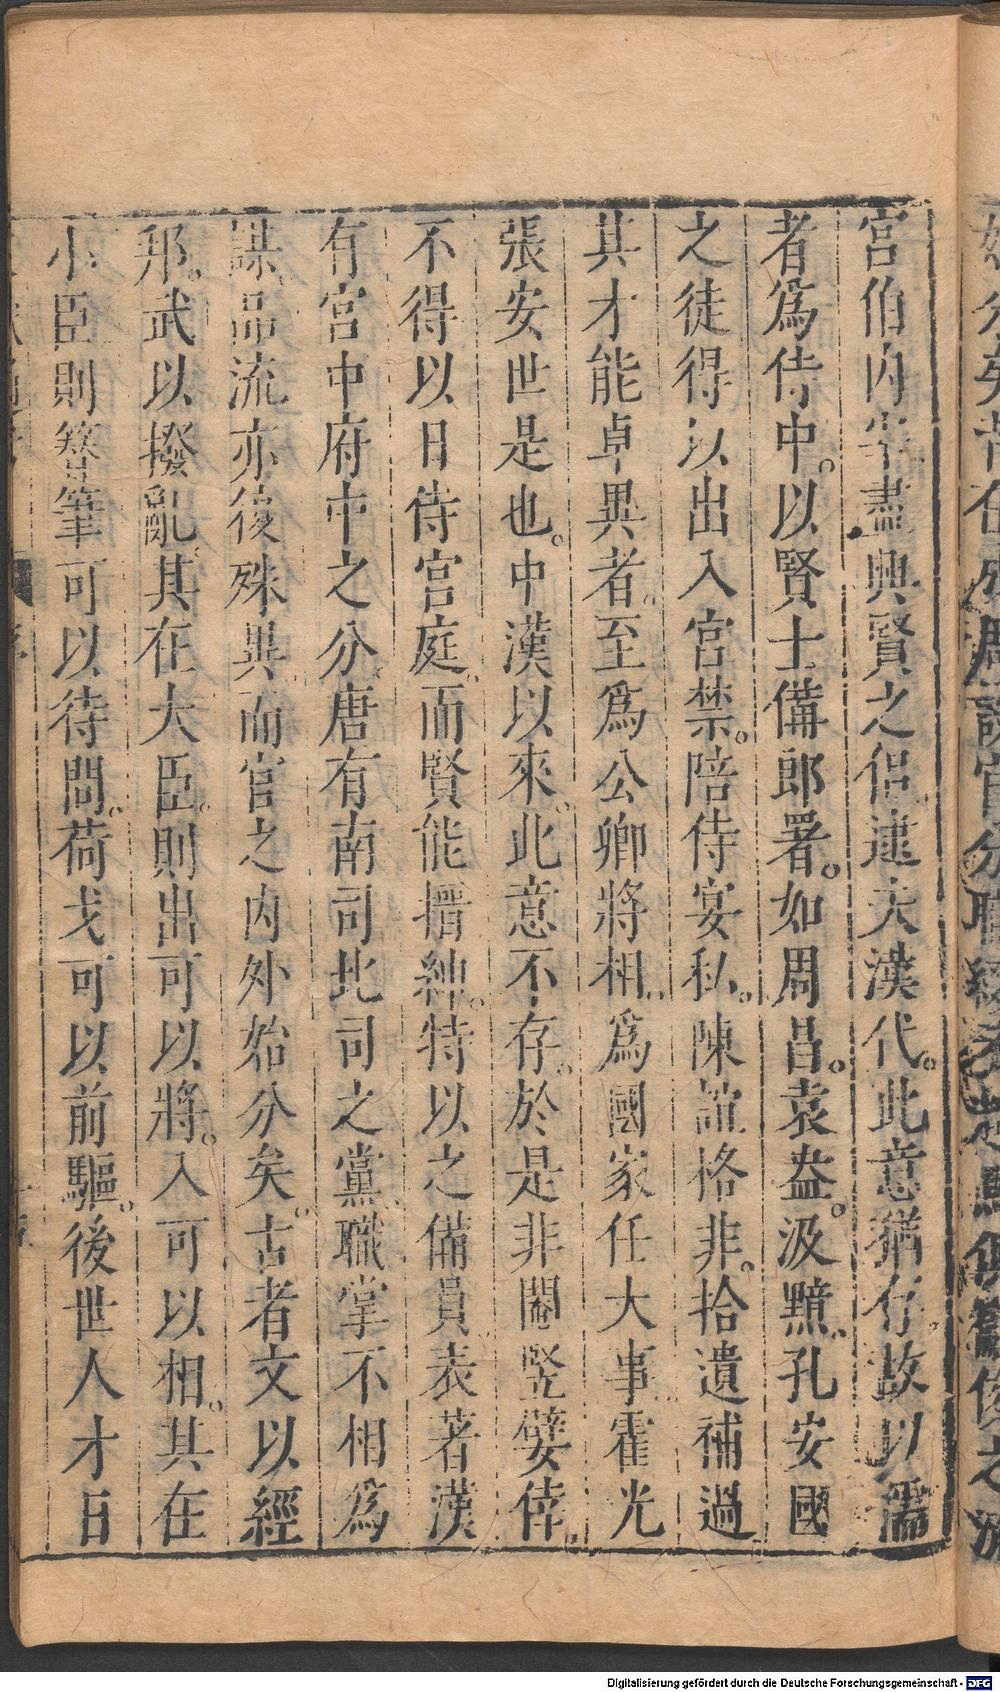 宮伯內宰盡興賢之侶逮夫漢代。此意猶存。故以儒
者爲侍中。以賢士備郎署。如周昌。袁盎。汲黯。孔安國
之徒得以出入宮禁。陪侍宴私。陳誼格非。拾遺補過
其才能卓異者。至爲公卿將相。爲國家任大事。霍光
張安世是也。中漢以來。此意不存。於是非閹竪嬖倖。
不得以日侍宮庭。而賢能搢紳。特以之備員表著。漢
有宮中府中之分。唐有南司北司之黨。職掌不相爲
謀。品流亦復殊異。而官之內外始分矣。古者文以經
邦。武以撥亂。其在大臣。則出可以將。入可以相。其在
小臣則簪筆可以待問。荷戈可以前驅。後世人才日
Digitalisierung gefördert durch die Deutsche Forschungsgemeinschaft - DFG